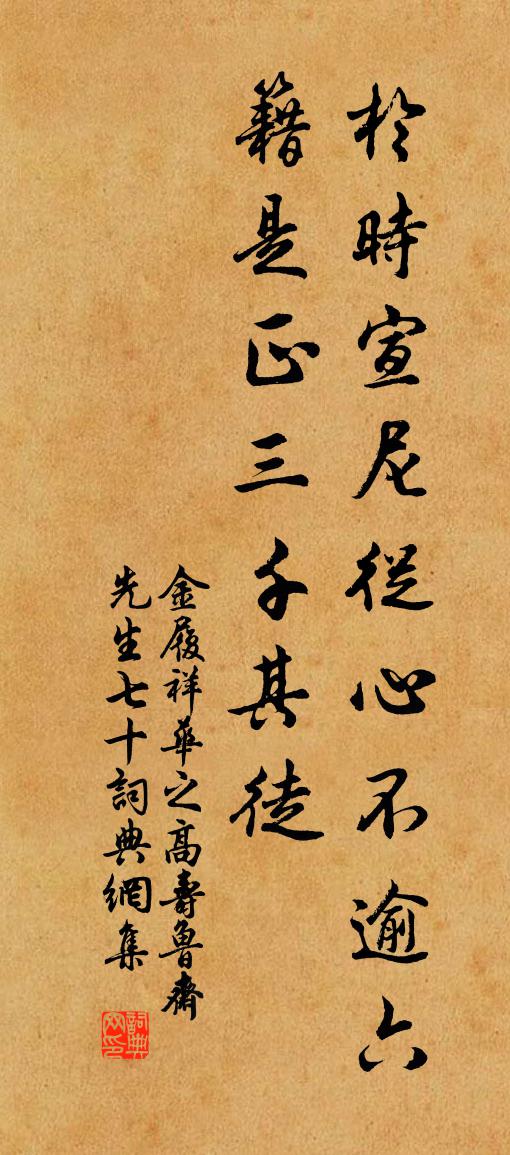 於時宣尼從心不逾六
籍是正三千其徒
金履祥華之高壽魯齋
先生七十詞典網集
詞典網印